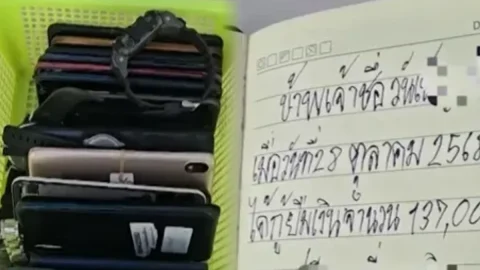 ข้าพเจ้าชื่อวัน
เมื่อวันที่ 28 ตุลาคม 2568
ได้กู้ยืมเงินจำนวน 137,00